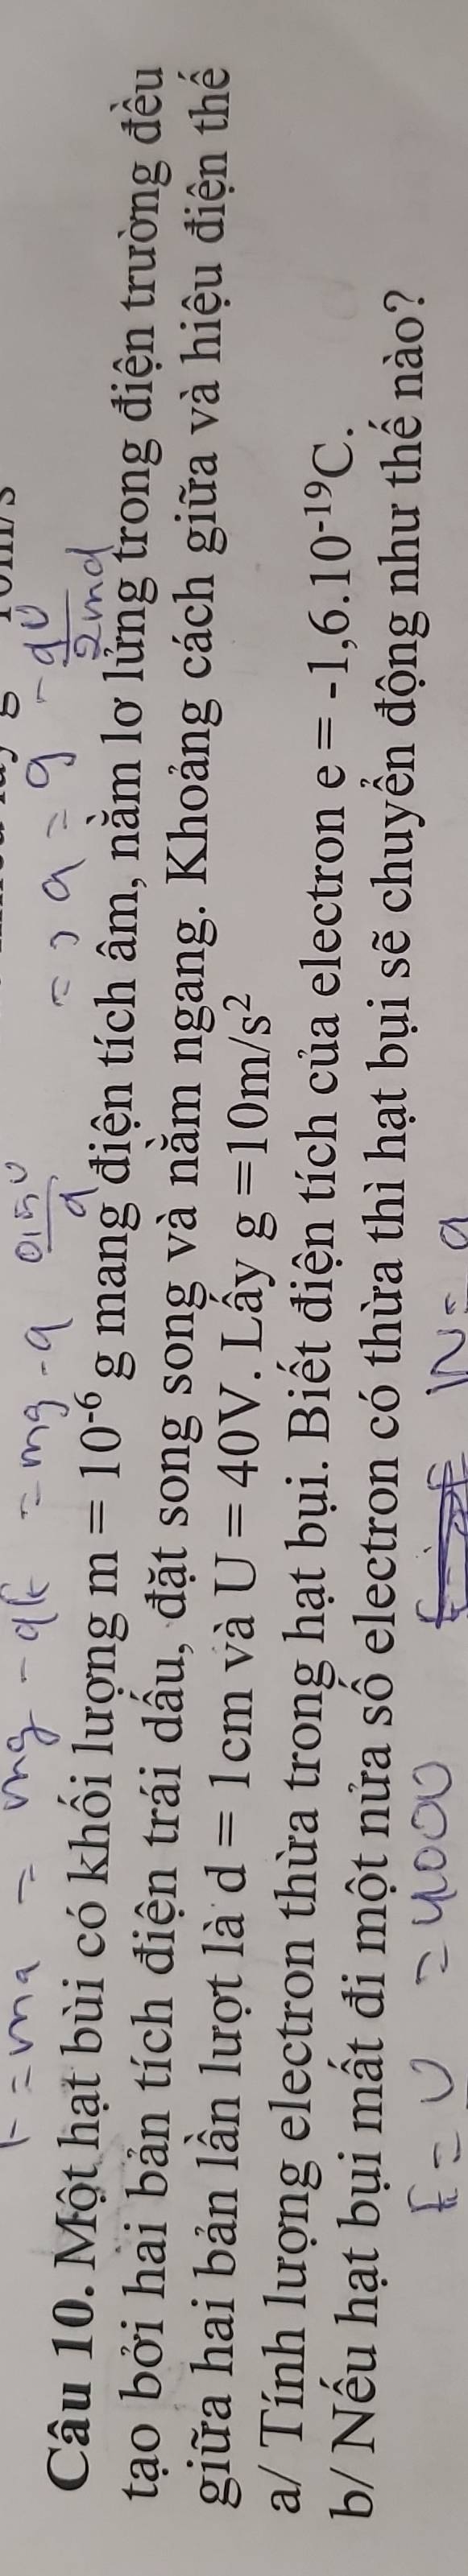 F = ma = mg - qE = mg - q 0,5U/d => a = g - qU/2md
Câu 10. Một hạt bùi có khối lượng m = 10⁻⁶ g mang điện tích âm, nằm lơ lửng trong điện trường đều
tạo bởi hai bản tích điện trái dấu, đặt song song và nằm ngang. Khoảng cách giữa và hiệu điện thế
giữa hai bản lần lượt là d = 1cm và U = 40V. Lấy g =10m/s²
a/ Tính lượng electron thừa trong hạt bụi. Biết điện tích của electron e = -1,6.10⁻¹⁹C.
b/ Nếu hạt bụi mất đi một nửa số electron có thừa thì hạt bụi sẽ chuyển động như thế nào?
E = U = 4000 N = q